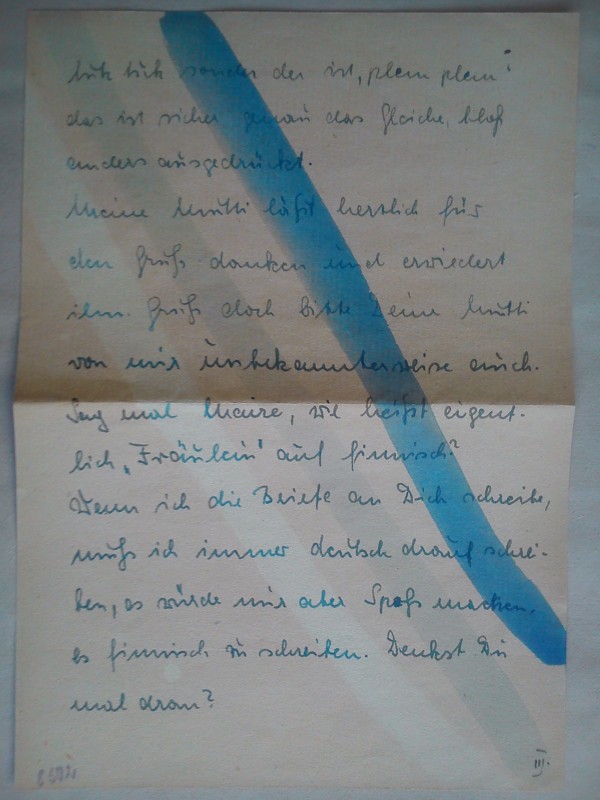 tük tük sonder der ist „plem plem“
das ist sicher genau das Gleiche, bloß
anders ausgedrückt.
Meine Mutti läßt herzlich für
den Gruß danken und erwiedert
ihn. Grüß doch bitte Deine Mutti
von mir unbekannterweise auch.
Sag mal Maire, wie heißt eigent-
lich „Fräulein“ auf finnisch?
Wenn ich die Briefe an Dich schreibe,
muß ich immer deutsch drauf schrei-
ben, es würde mir aber Spaß machen,
es finnisch zu schreiben. Denkst Du
mal dran?
III.